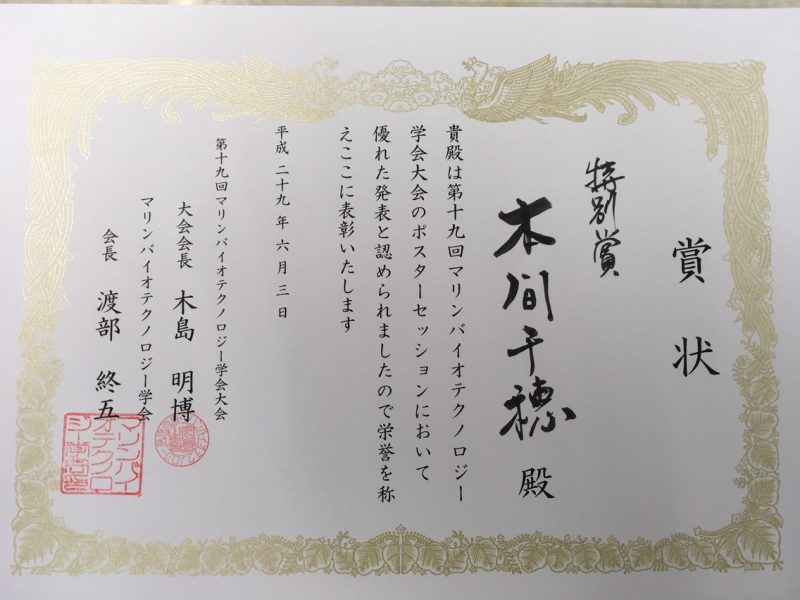 賞状
特別賞
本間千穂 殿
貴殿は第十九回マリンバイオテクノロジー
学会大会のポスターセッションにおいて
優れた発表と認められましたので栄誉を称
えここに表彰いたします
平成 二十九 年 六 月 三 日
第十九回マリンバイオテクノロジー学会大会
大会会長 木島 明博
マリンバイオテクノロジー学会
会長 渡部 終五
マリンバイ
オテクノロ
ジー学会印